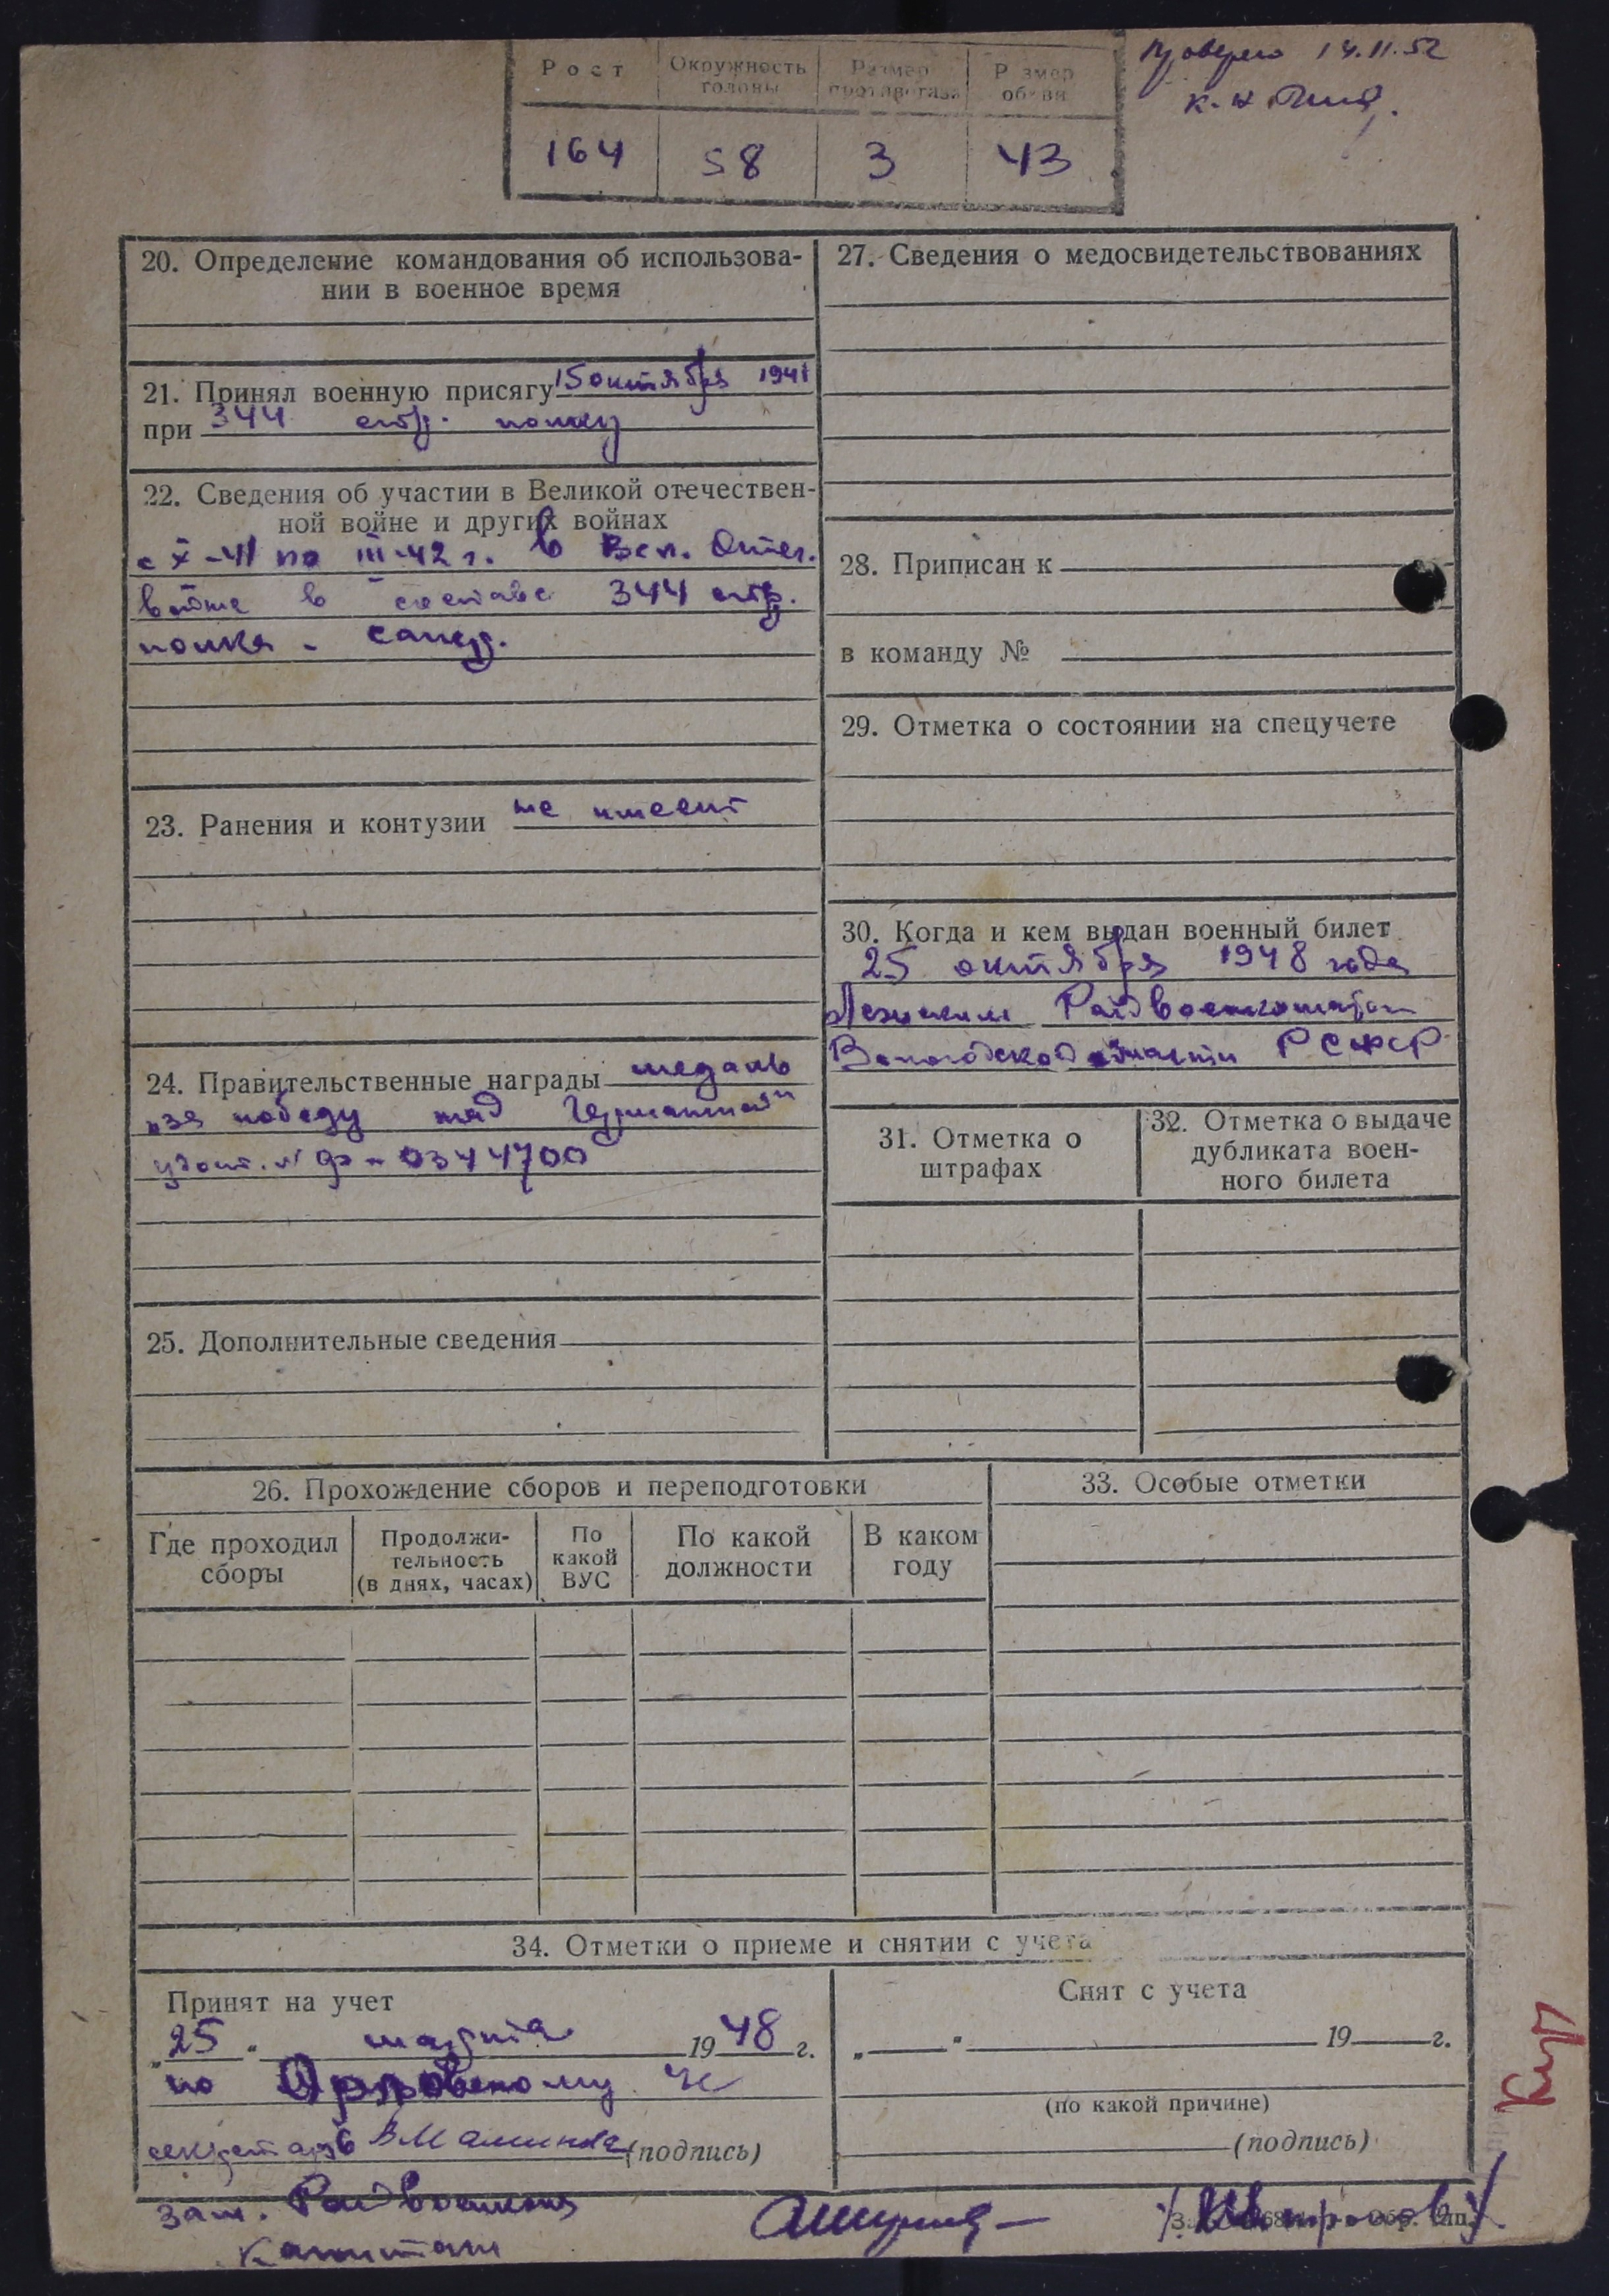 Проверено 14.11.52
к-н
Рост
Окружность головы
Размер противогаза
Размер обуви
164 58 3 43
20. Определение командования об использова-
нии в военное время
21. Принял военную присягу 15 октября 1941
при 344 стр. полку
22. Сведения об участии в Великой отечествен-
ной войне и других войнах
с X-41 по III-42 г. в Вел. Отеч.
войне в составе 344 стр.
полка - сапер.
23. Ранения и контузии не имеет
24. Правительственные награды медаль
„за победу над Германией"
удост. №
0344700
25. Дополнительные сведения
26. Прохождение сборов и переподготовки
Где проходил
сборы
Продолжи-
тельность
(в днях, часах)
По
какой
ВУС
По какой
должности
В каком
году
27. Сведения о медосвидетельствованиях
28. Приписан к
в команду №
29. Отметка о состоянии на спецучете
30. Когда и кем выдан военный билет
25 октября 1948 года
Райвоенкоматом
Вологодской области РСФСР
31. Отметка о
штрафах
32. Отметка о выдаче
дубликата воен-
ного билета
33. Особые отметки
34. Отметки о приеме и снятии с учета
Принят на учет
„25" марта 1948 г.
по
секретарь (подпись)
Снят с учета
„ " 19 г.
(по какой причине)
(подпись)
зам. Райвоенкома
Капитан